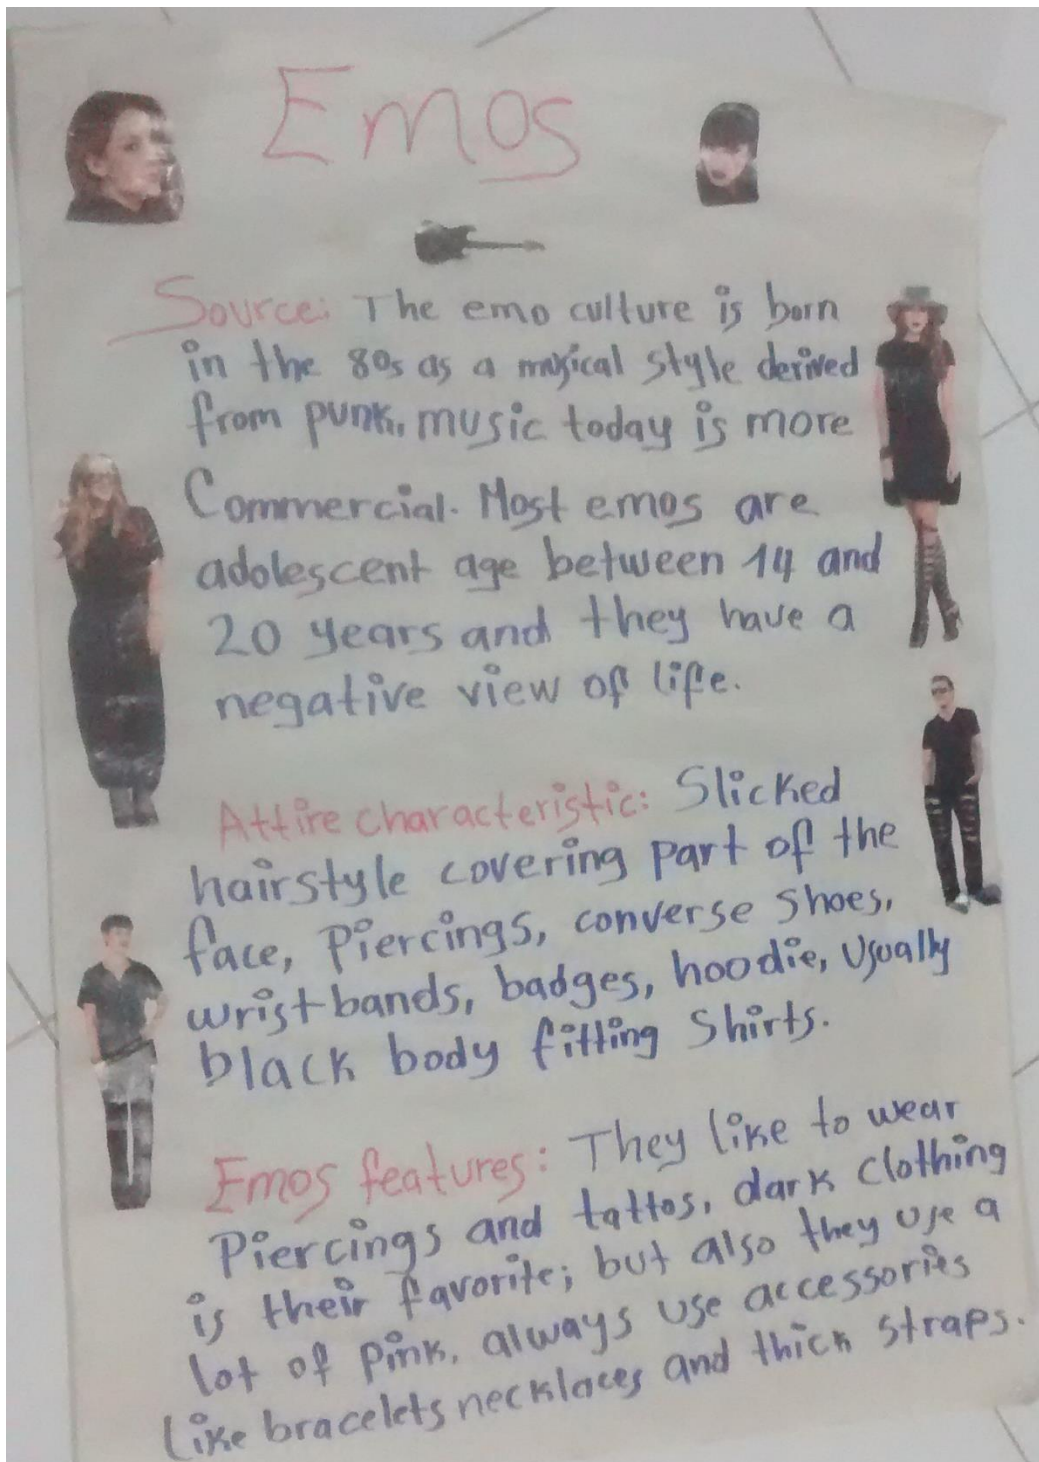 Emos
Source: The emo culture is born
in the 80s as a musical style derived
from punk, music today is more
Commercial. Most emos are
adolescent age between 14 and
20 years and they have a
negative view of life.
Attire characteristic: Slicked
hairstyle covering part of the
face, Piercings, converse shoes,
wristbands, badges, hoodie, usually
black body fitting shirts.
Emos features: They like to wear
Piercings and tattos, dark clothing
is their favorite; but also they use a
lot of pink, always use accessories
like bracelets necklaces and thick straps.